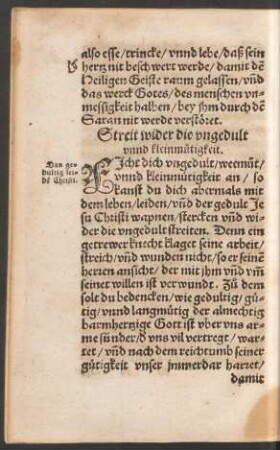 also esse/trincke/vnnd lebe/daß sein
hertz nit beschwert werde/damit dē
Heiligen Geiste raum gelassen/vñ
das werck Gotes/des menschen vn-
messigkeit halben/bey jhm durch dē
Satan nit werde verstöret.
Streit wider die vngedult
vnnd kleinmütigkeit.
Den ge-
dultig lei-
dē Christi.
FIcht dich vngedult/weemüt/
vnnd kleinmütigkeit an/so
kanst du dich abermals mit
dem leben/leiden/vñ der gedult Je
su Christi wapnen/stercken vñ wi-
der die vngedult streiten. Denn ein
getrewer knecht klaget seine arbeit/
streich/vñ wunden nicht/so er seinē
herren ansicht/der mit jhm vnd vm̄
seinet willen ist verwundt. Zů dem
solt du bedencken/wie gedultig/gü-
tig/vnnd langmütig der almechtig
barmhertzige Gott ist vber vns ar-
me sünder/d vns vil vertregt/war-
tet/vñ nach dem reichtumb seiner
gütigkeit vnser jmmerdar harret/
damit